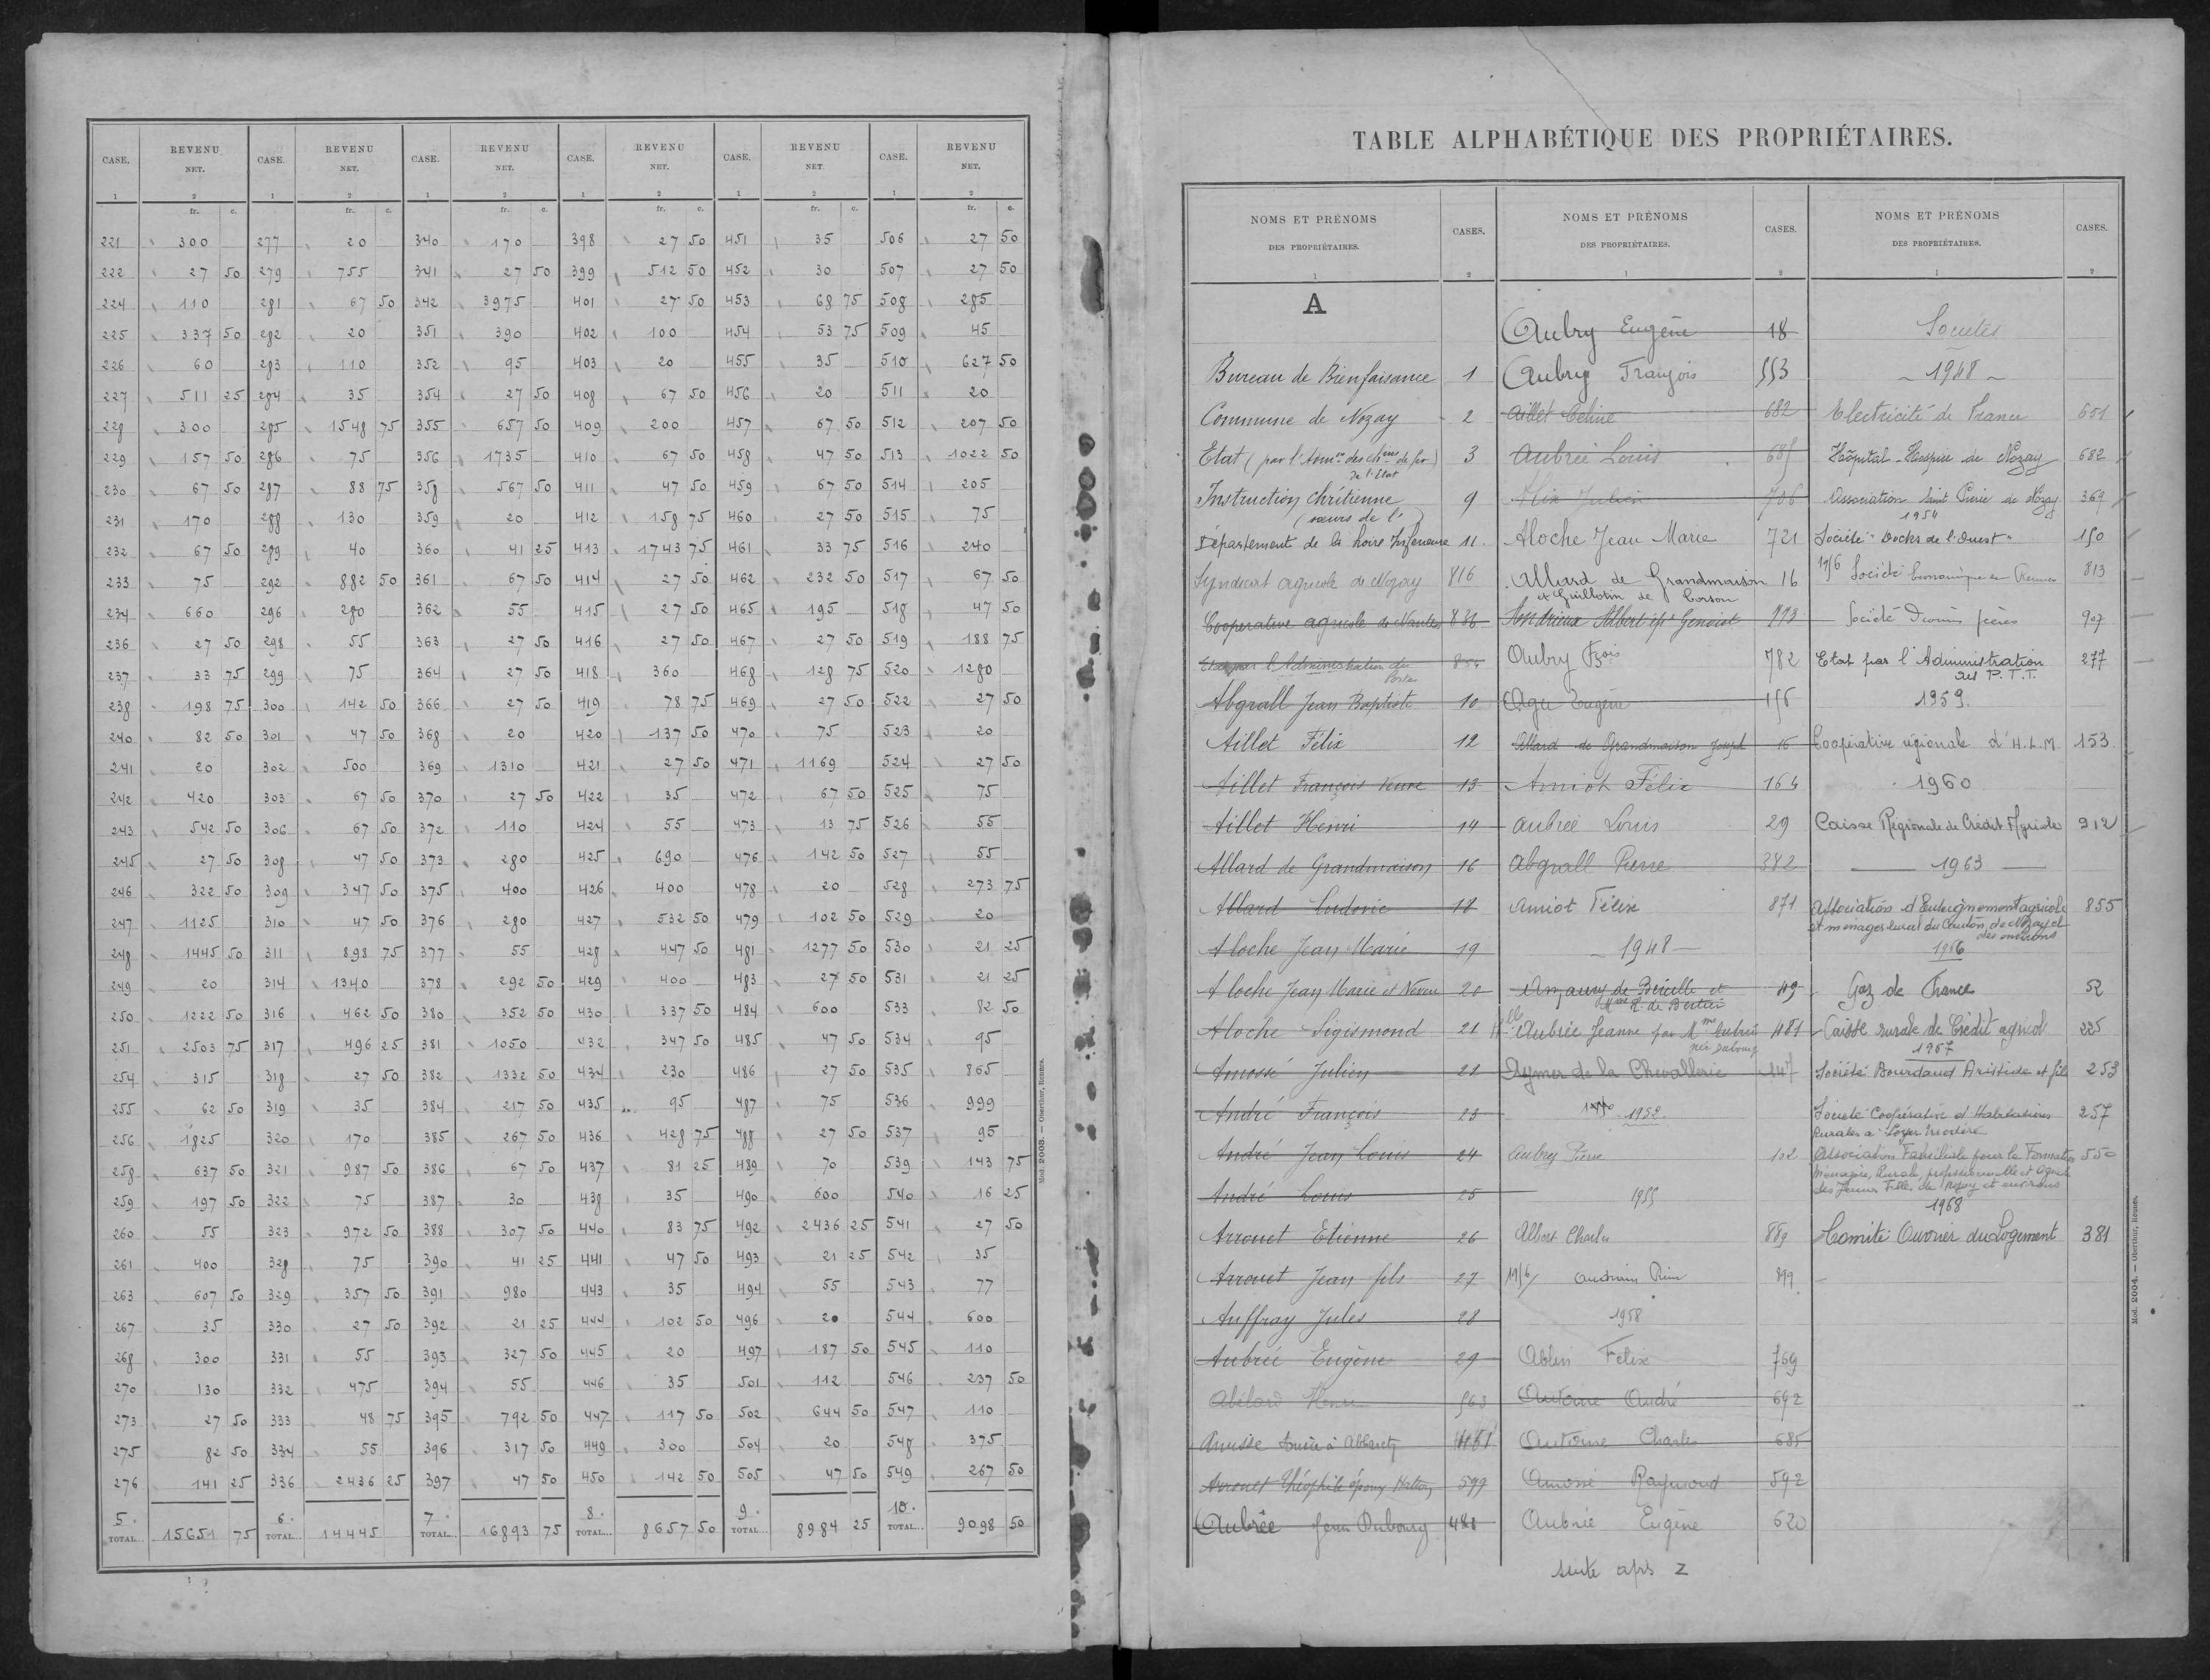 CASE. REVENU NET. CASE. REVENU NET. CASE. REVENU NET. CASE. REVENU NET. CASE. REVENU NET. CASE. REVENU NET.
1 2 1 2 1 2 1 2 1 2 1 2
fr. c. fr. c. fr. c. fr. c. fr. c. fr. c.
221 300 277 20 340 170 398 27 50 451 35 506 27 50
222 27 50 279 755 341 27 50 399 512 50 452 30 507 27 50
224 110 281 67 50 342 3975 401 27 50 453 68 75 508 285
225 337 50 282 20 351 390 402 100 454 53 75 509 45
226 60 283 110 352 95 403 20 455 35 510 627 50
227 511 25 284 35 354 27 50 408 67 50 456 20 511 20
228 300 285 1548 75 355 657 50 409 200 457 67 50 512 207 50
229 157 50 286 75 356 1735 410 67 50 458 47 50 513 1022 50
230 67 50 287 88 75 358 567 50 411 47 50 459 67 50 514 205
231 170 288 130 359 20 412 158 75 460 27 50 515 75
232 67 50 289 40 360 41 25 413 1743 75 461 33 75 516 240
233 75 292 882 50 361 67 50 414 27 50 462 232 50 517 67 50
234 660 296 280 362 55 415 27 50 465 195 518 47 50
236 27 50 298 55 363 27 50 416 27 50 467 27 50 519 188 75
237 33 75 299 75 364 27 50 418 360 468 128 75 520 1280
238 198 75 300 142 50 366 27 50 419 78 75 469 27 50 522 27 50
240 82 50 301 47 50 368 20 420 137 50 470 75 523 20
241 20 302 500 369 1310 421 27 50 471 1169 524 27 50
242 420 303 67 50 370 27 50 422 35 472 67 50 525 75
243 542 50 306 67 50 372 110 424 55 473 13 75 526 55
245 27 50 308 47 50 373 280 425 690 476 142 50 527 55
246 322 50 309 347 50 375 400 426 400 478 20 528 273 75
247 1125 310 47 50 376 280 427 532 50 479 102 50 529 20
248 1445 50 311 898 75 377 55 428 447 50 481 1277 50 530 21 25
249 20 314 1340 378 292 50 429 400 483 27 50 531 21 25
250 1222 50 316 462 50 380 352 50 430 337 50 484 600 533 82 50
251 2503 75 317 496 25 381 1050 432 347 50 485 47 50 534 95
254 315 318 27 50 382 1332 50 434 230 486 27 50 535 865
255 62 50 319 35 384 217 50 435 95 487 75 536 999
256 1825 320 170 385 267 50 436 428 75 488 27 50 537 95
258 637 50 321 987 50 386 67 50 437 81 25 489 70 539 143 75
259 197 50 322 75 387 30 438 35 490 600 540 16 25
260 55 323 972 50 388 307 50 440 83 75 492 2436 25 541 27 50
261 400 328 75 390 41 25 441 47 50 493 21 25 542 35
263 607 50 329 357 50 391 980 443 35 494 55 543 77
267 35 330 27 50 392 21 25 444 102 50 496 20 544 600
268 300 331 55 393 327 50 445 20 497 187 50 545 110
270 130 332 475 394 55 446 35 501 112 546 237 50
273 27 50 333 48 75 395 792 50 447 117 50 502 644 50 547 110
275 82 50 334 55 396 317 50 449 300 504 20 548 375
276 141 25 336 2436 25 397 47 50 450 142 50 505 47 50 549 267 50
5. 6. 7. 8. 9. 10.
TOTAL... 15651 75 TOTAL... 14445 TOTAL... 16893 75 TOTAL... 8657 50 TOTAL... 8984 25 TOTAL... 9098 50
Mod. 2003. — Oberthur, Rennes.
TABLE ALPHABÉTIQUE DES PROPRIÉTAIRES.
NOMS ET PRÉNOMS DES PROPRIÉTAIRES. CASES. NOMS ET PRÉNOMS DES PROPRIÉTAIRES. CASES. NOMS ET PRÉNOMS DES PROPRIÉTAIRES. CASES.
1 2 1 2 1 2
A
Bureau de Bienfaisance 1
Commune de Nozay 2
Etat (par l'Admon des chins de fer de l'Etat) 3
Instruction chrétienne (sœurs de l') 9
Département de la Loire Inférieure 11.
Syndicat agricole de Nozay 816
Cooperative agricole de Nantes 836
Etat par l'Administration des Postes
Abgrall Jean Baptiste 10
Aillet Félix 12
Aillet François Veuve 13
Aillet Henri 14
Allard de Grandmaison 16
Allard Ludovic 18
Aloche Jean Marie 19
Aloche Jean Marie et Neveu 20
Aloche Sigismond 21
Amossé Julien 22
André François 23
André Jean Louis 24
André Louis 25
Arrouet Etienne 26
Arrouet Jean fils 27
Auffray Jules 28
Aubrée Eugène 29
Abélard Henri 563
à Abbaretz
Arrouet Théophile époux 599
Aubrée Jean Dubourg 480
Aubry Eugène 18
Aubry François 553
Aillet Celine 682
Aubrée Louis 685
Alix Julien 706
Aloche Jean Marie 721
Allard de Grandmaison 16
et Guillotin de Corson
Andrieux Albert
Aubry Fçois 782
Eugène
Allard de Grandmaison Joseph 16
Amiot Félix 164
Aubrée Louis 29
Abgrall Pierre 382
Amiot Félix 871
1948
Amaury de et 49
Mme de Bertier
Melle Aubrée Jeanne par Mme Aubrée née Dubourg 481
Aymer de la Chevallerie
1952
Aubry Pierre 102
1955
Albert Charles 889
1956 Pierre 899
1958
Ablin Felix 769
Antoine André 692
Antoine Charles 685
Amossé Raymond 592
Aubrée Eugène 620
suite aprs Z
Sociétés
1948
Electricité de France 651
Hôpital-Hospice de Nozay 682
Association Saint Pierre de Nozay 369
1954
Société "Docks de l'Ouest" 150
1956 Société Economique de Rennes 813
Société Drouin frères 907
Etat par l'Administration des P.T.T. 277
1959.
Coopérative régionale d'H.L.M. 153
1960
Caisse Régionale de Crédit Agricole 912
1963
Association d'Enseignement agricole 855
et menager rural du Canton de Nozay et
des environs
1966
Gaz de France 52
Caisse rurale de Crédit agricol 225
1967
Société Bourdaud Aristide et fils 253
Société Coopérative d'Habitations 257
Rurales à Loyer Modéré
Association Familiale pour la Formation 550
Ménagère, Rurale professionnelle et Agricole
des Jeunes Filles de Nozay et environs
1968
Comité Ouvrier du Logement 381
Mod. 2004. — Oberthur, Rennes.